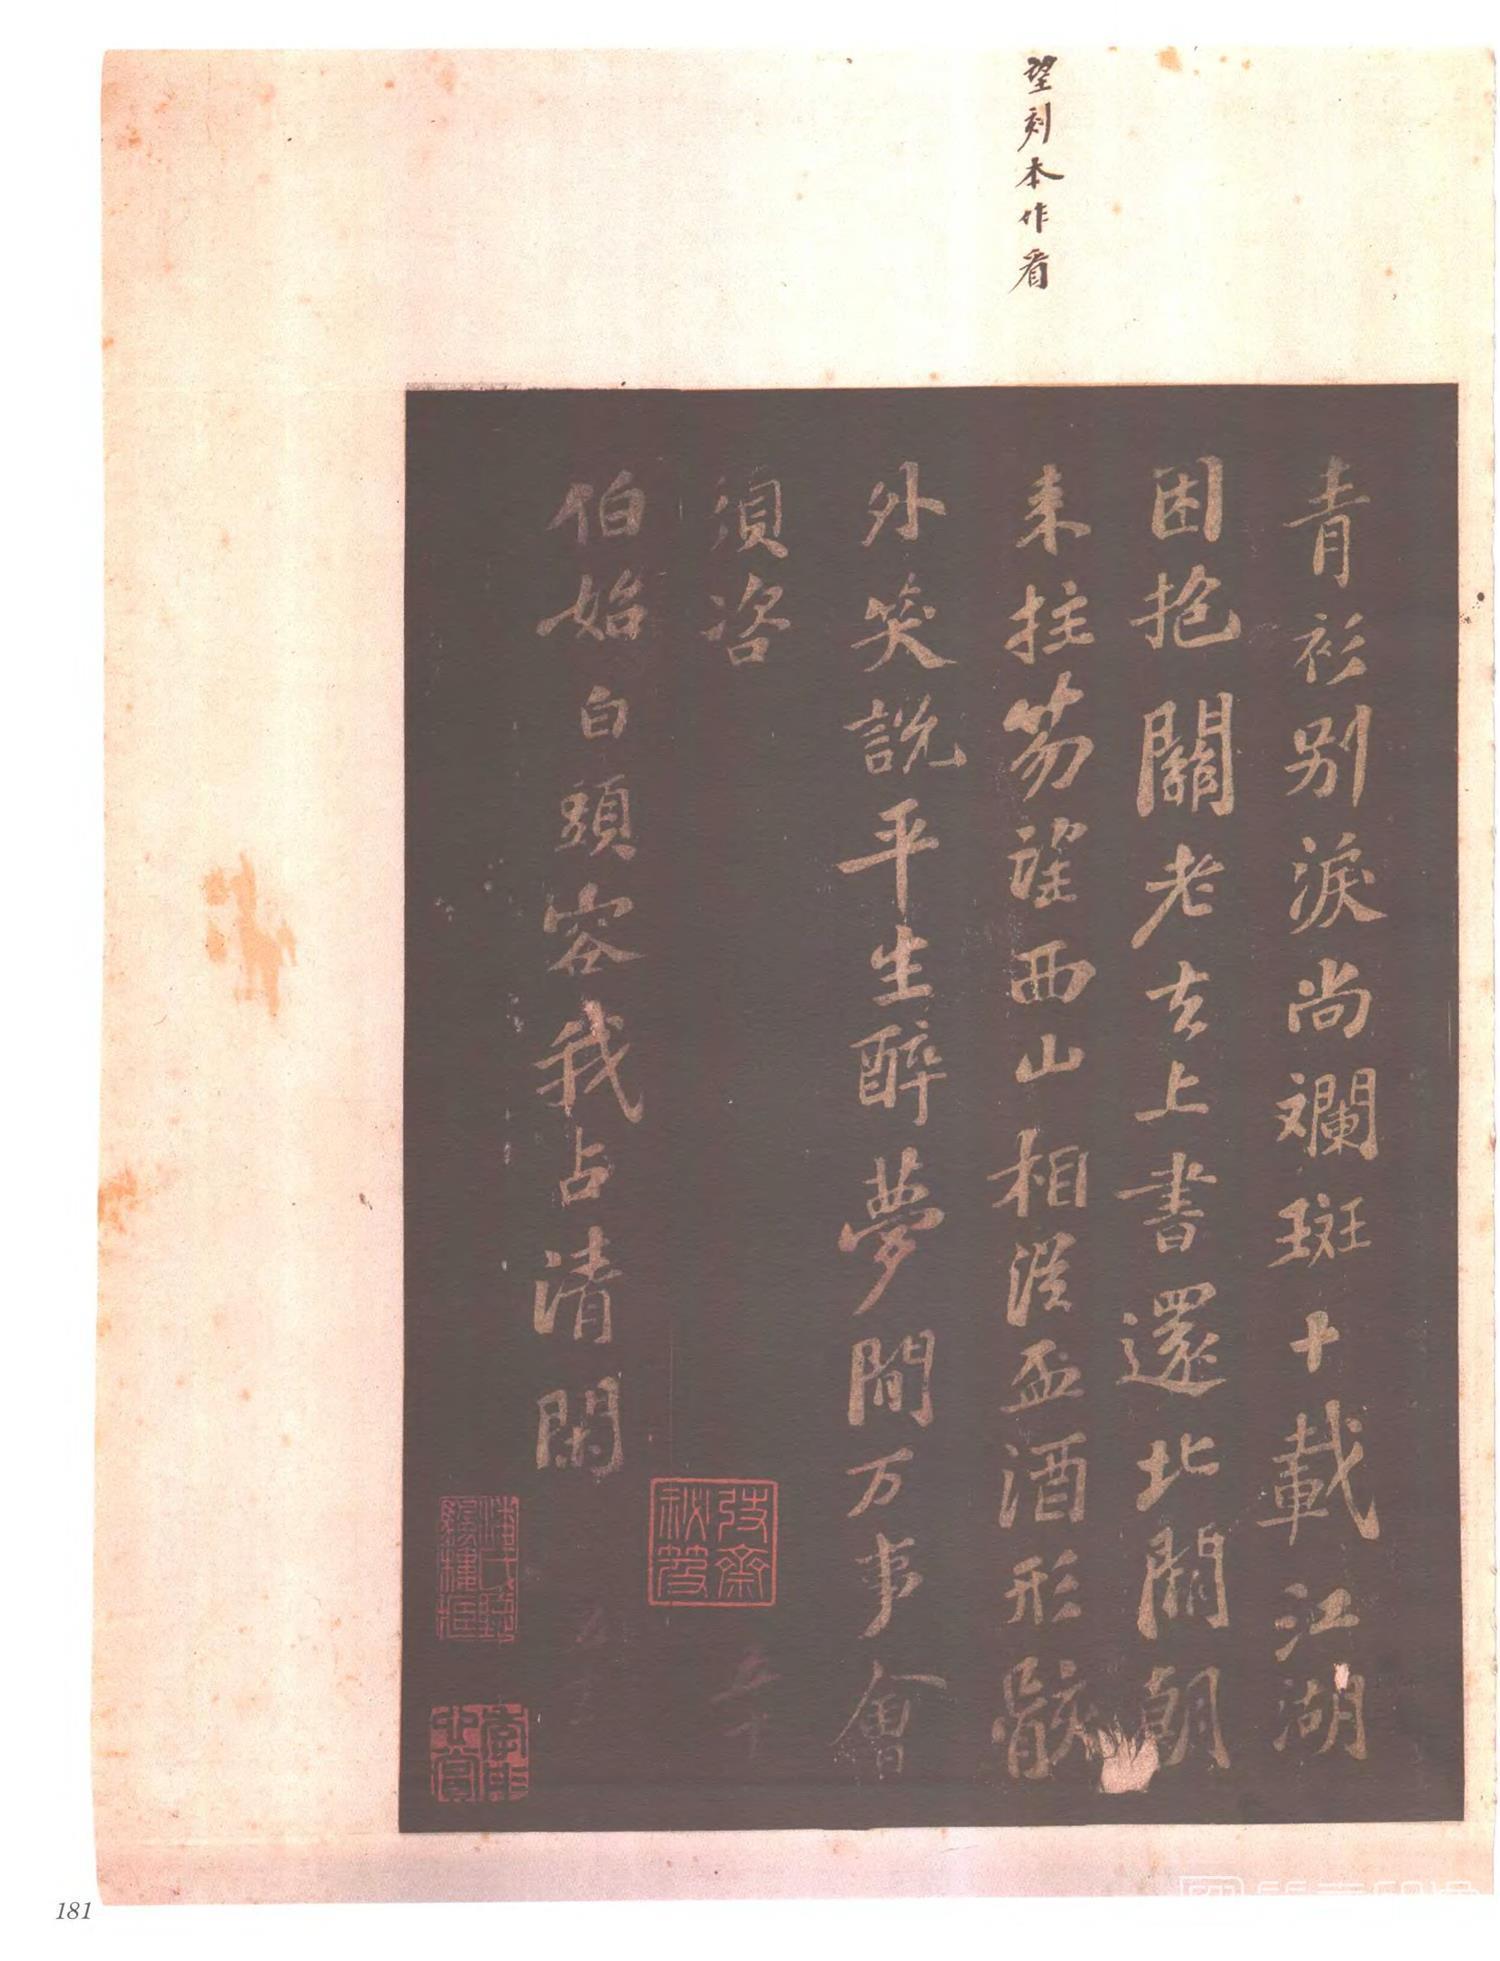 望刻本作看
青衫别淚尚斕斑十載江湖
困抱關老去上書還北闕朝
来拄笏望西山相從盃酒形骸
外笑說平生醉夢間万事會
須咨
伯始白頭容我占清閑
攷齋秘笈
181